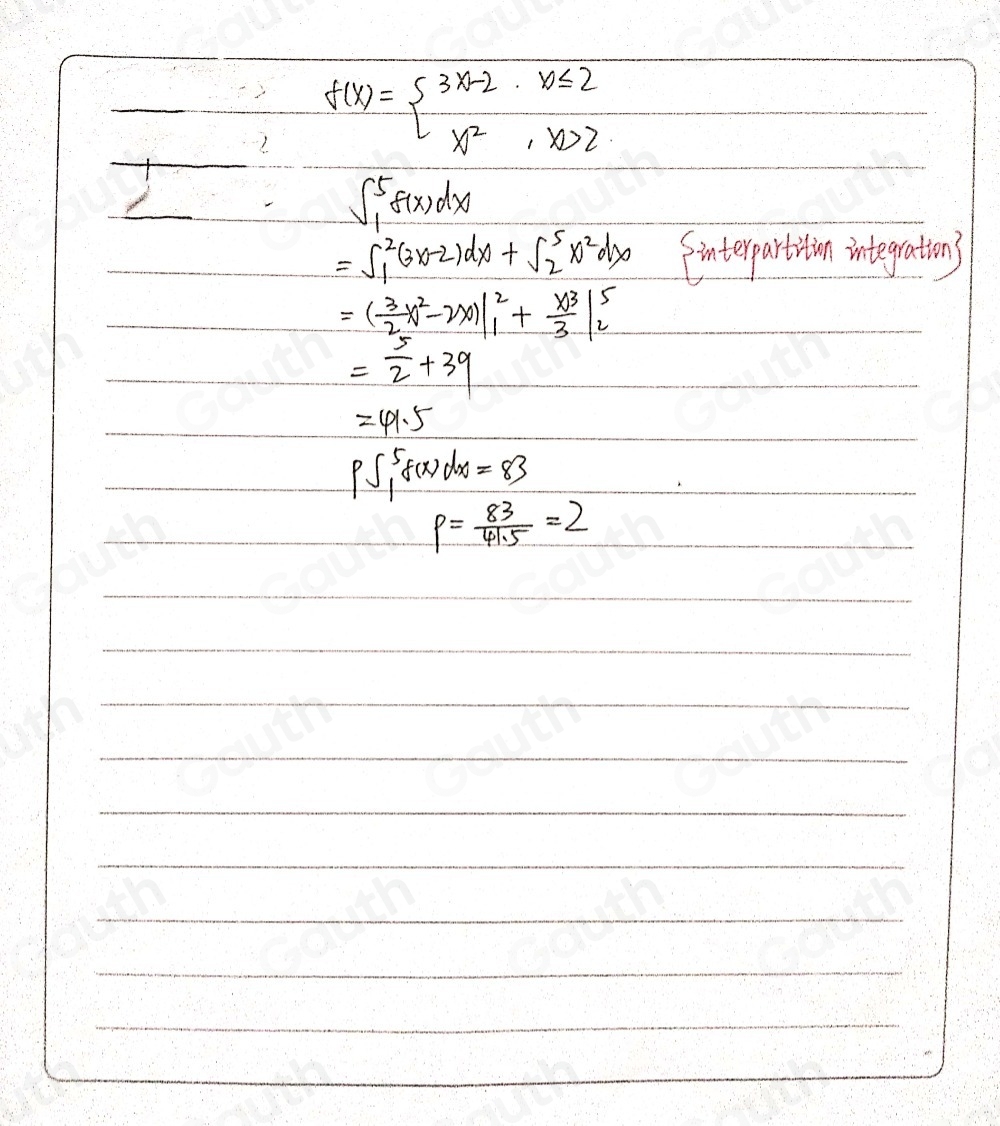 f(x) = { 3x-2 . x≤2
x² , x>2.
∫₁⁵ f(x) dx
= ∫₁² (3x-2) dx + ∫₂⁵ x² dx {interpartition integration}
= (3/2 x² - 2x)|₁² + x³/3 |₂⁵
= 5/2 + 39
= 41.5
p∫₁⁵ f(x) dx = 83
p = 83/41.5 = 2